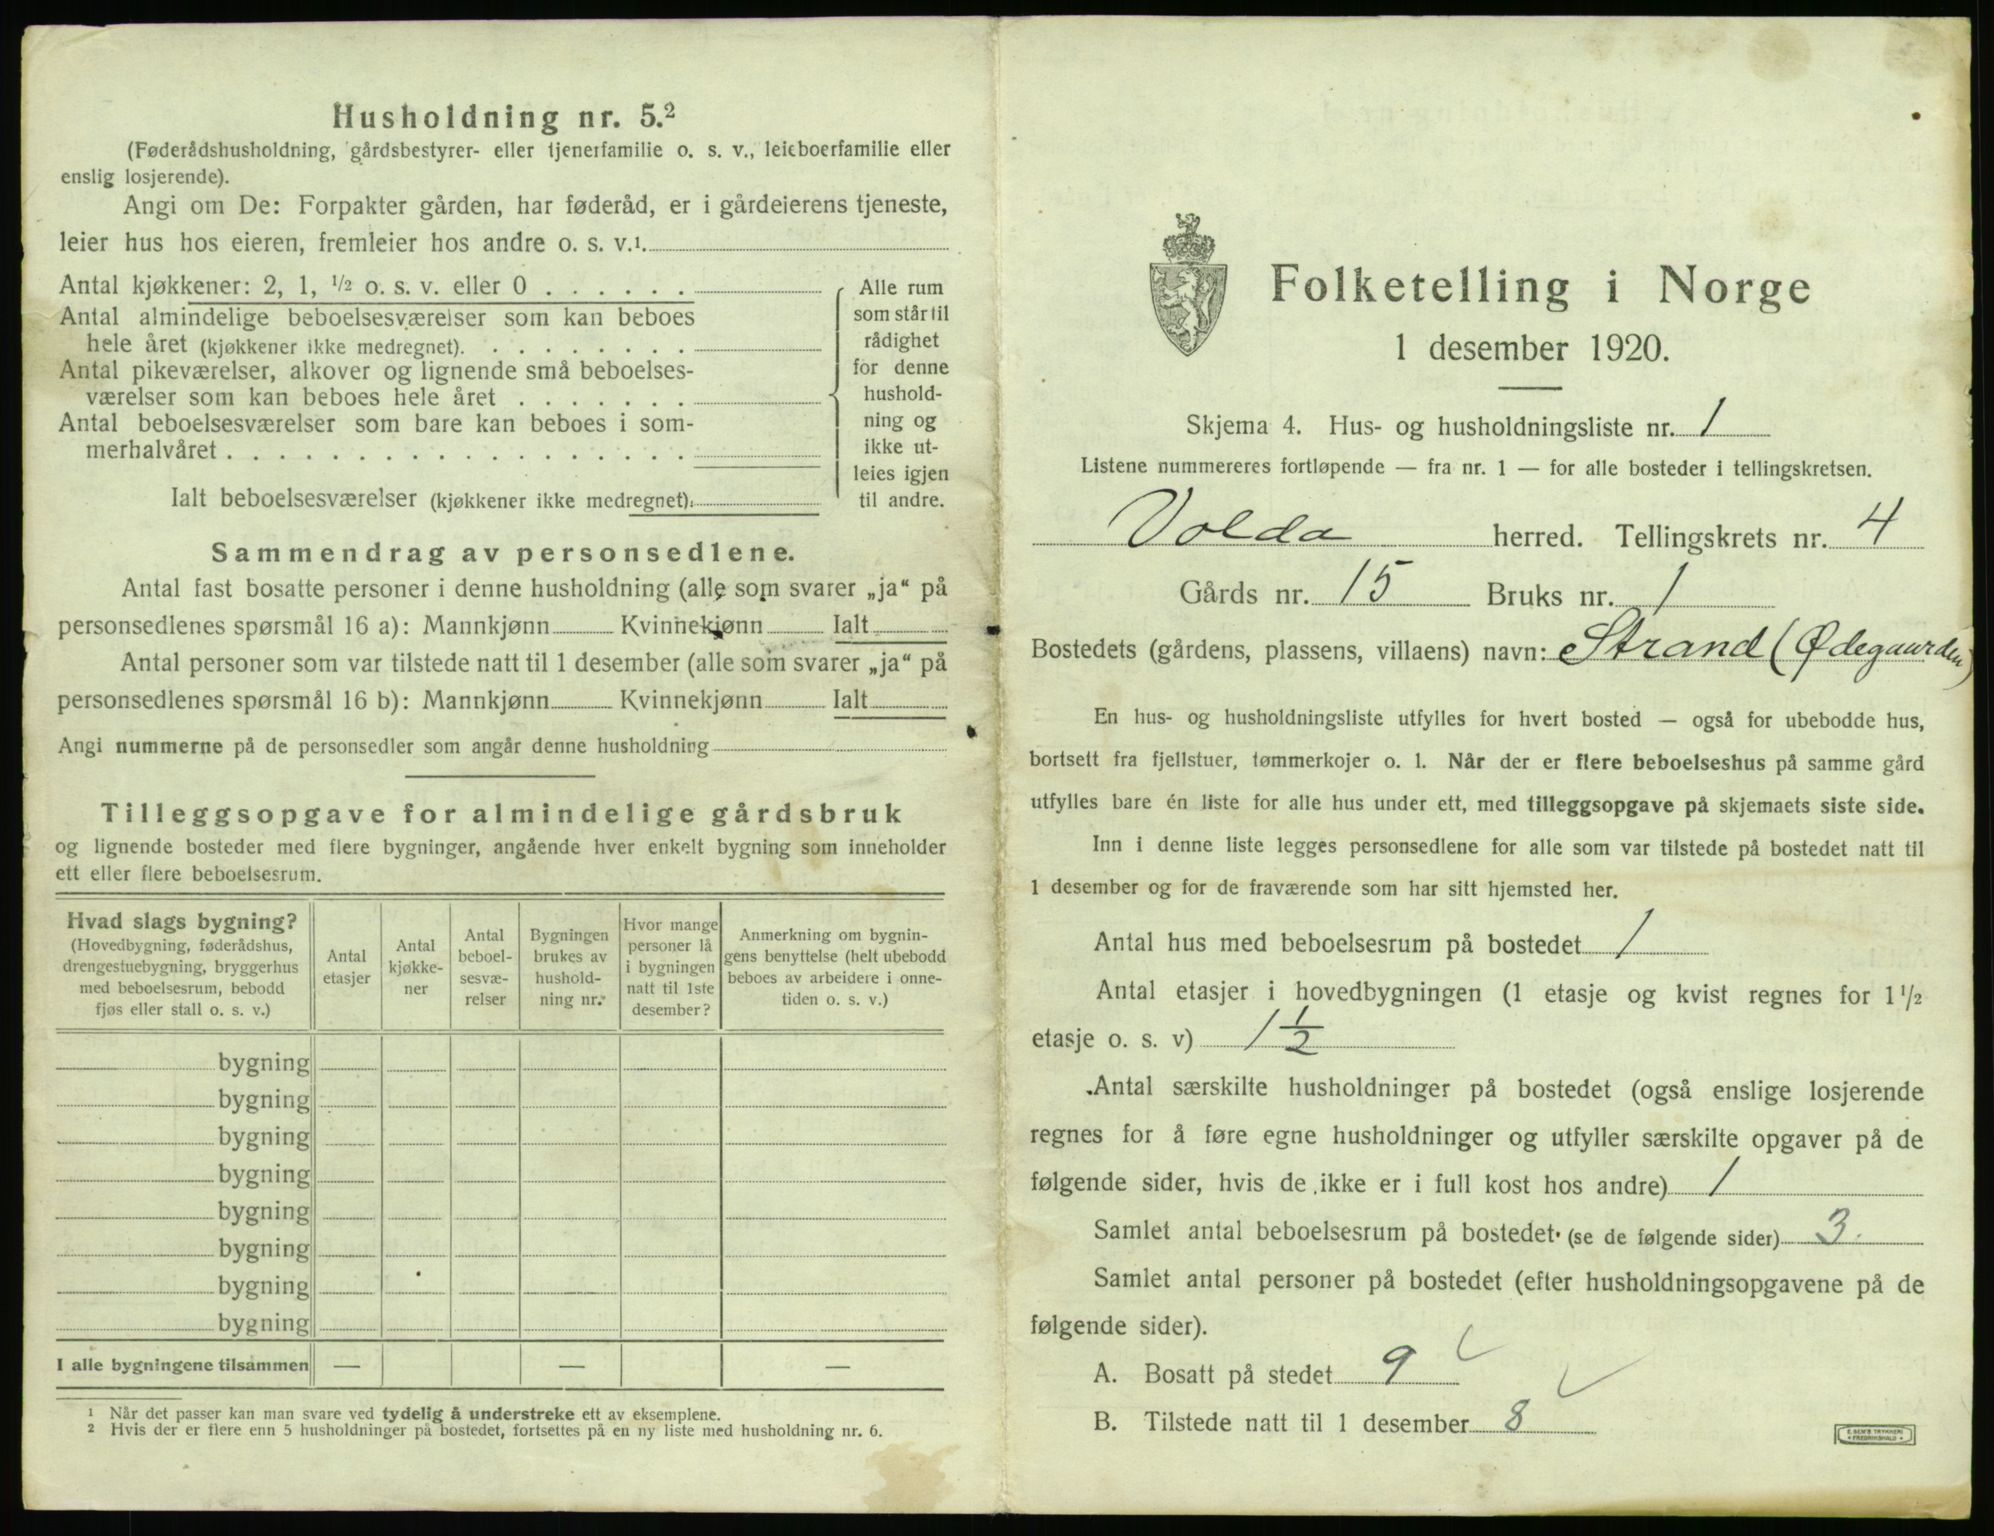 Husholdning nr. 5.²
(Føderådshusholdning, gårdsbestyrer- eller tjenerfamilie o. s. v., leieboerfamilie eller
enslig losjerende).
Angi om De: Forpakter gården, har føderåd, er i gårdeierens tjeneste,
leier hus hos eieren, fremleier hos andre o. s. v.¹
Antal kjøkkener: 2, 1, ½ o. s. v. eller 0 . . . . . .
Antal almindelige beboelsesværelser som kan beboes
hele året (kjøkkener ikke medregnet). . . . . . . . .
Antal pikeværelser, alkover og lignende små beboelses-
værelser som kan beboes hele året . . . . . . .
Antal beboelsesværelser som bare kan beboes i som-
merhalvåret . . . . . . . . . . . . . . . . . .
Ialt beboelsesværelser (kjøkkener ikke medregnet).
Alle rum
som står til
rådighet
for denne
hushold-
ning og
ikke ut-
leies igjen
til andre.
Sammendrag av personsedlene.
Antal fast bosatte personer i denne husholdning (alle som svarer „ja“ på
personsedlenes spørsmål 16 a): Mannkjønn Kvinnekjønn Ialt
Antal personer som var tilstede natt til 1 desember (alle som svarer „ja“ på
personsedlenes spørsmål 16 b): Mannkjønn Kvinnekjønn Ialt
Angi nummerne på de personsedler som angår denne husholdning
Tilleggsopgave for almindelige gårdsbruk
og lignende bosteder med flere bygninger, angående hver enkelt bygning som inneholder
ett eller flere beboelsesrum.
Hvad slags bygning?
(Hovedbygning, føderådshus,
drengestuebygning, bryggerhus
med beboelsesrum, bebodd
fjøs eller stall o. s. v.)
Antal
etasjer
Antal
kjøkke-
ner
Antal
beboel-
sesvæ-
relser
Bygningen
brukes av
hushold-
ning nr.
Hvor mange
personer lå
i bygningen
natt til 1ste
desember?
Anmerkning om bygnin-
gens benyttelse (helt ubebodd
beboes av arbeidere i onne-
tiden o. s. v.)
bygning
bygning
bygning
bygning
bygning
bygning
bygning
bygning
I alle bygningene tilsammen — — —
¹ Når det passer kan man svare ved tydelig å understreke ett av eksemplene.
² Hvis der er flere enn 5 husholdninger på bostedet, fortsettes på en ny liste med husholdning nr. 6.
Folketelling i Norge
1 desember 1920.
Skjema 4. Hus- og husholdningsliste nr. 1
Listene nummereres fortløpende — fra nr. 1 — for alle bosteder i tellingskretsen.
Volda herred. Tellingskrets nr. 4
Gårds nr. 15 Bruks nr. 1
Bostedets (gårdens, plassens, villaens) navn: Strand (Ødegaarden)
En hus- og husholdningsliste utfylles for hvert bosted — også for ubebodde hus,
bortsett fra fjellstuer, tømmerkojer o. l. Når der er flere beboelseshus på samme gård
utfylles bare én liste for alle hus under ett, med tilleggsopgave på skjemaets siste side.
Inn i denne liste legges personsedlene for alle som var tilstede på bostedet natt til
1 desember og for de fraværende som har sitt hjemsted her.
Antal hus med beboelsesrum på bostedet 1
Antal etasjer i hovedbygningen (1 etasje og kvist regnes for 1½
etasje o. s. v) 1½
Antal særskilte husholdninger på bostedet (også enslige losjerende
regnes for å føre egne husholdninger og utfyller særskilte opgaver på de
følgende sider, hvis de ikke er i full kost hos andre) 1
Samlet antal beboelsesrum på bostedet (se de følgende sider) 3.
Samlet antal personer på bostedet (efter husholdningsopgavene på de
følgende sider).
A. Bosatt på stedet 9 ✓
B. Tilstede natt til 1 desember 8 ✓
E. SEM'S TRYKKERI
• FREDRIKSHALD •